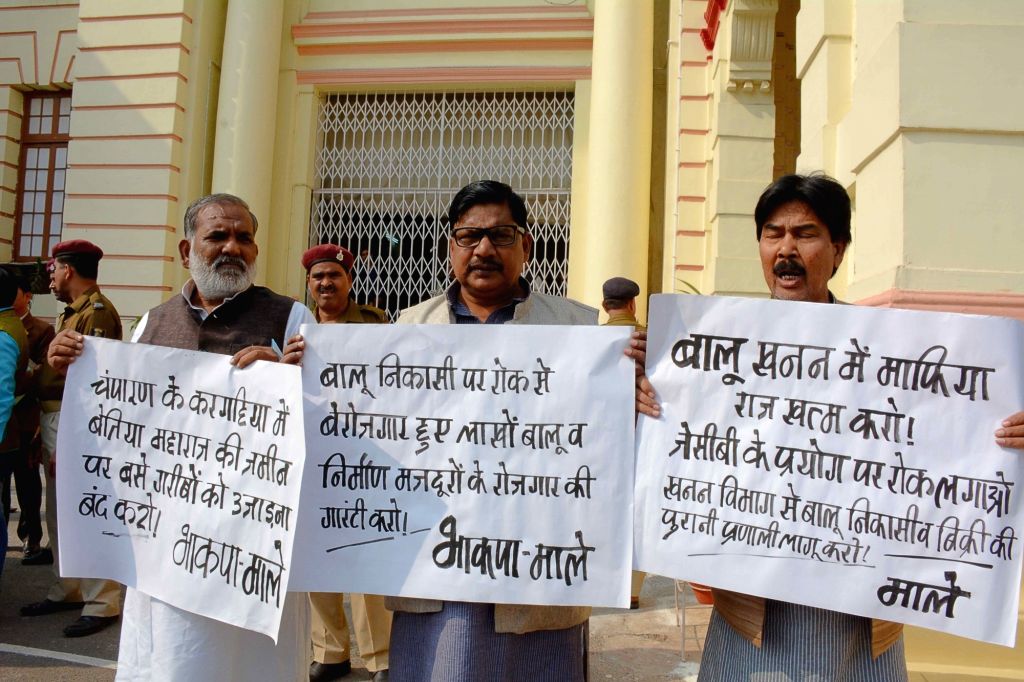 चंपारण के करगहिया में
बेतिया महाराज की जमीन
पर बसे गरीबों को उजाड़ना
बंद करो!
भाकपा-माले
बालू निकासी पर रोक से
बेरोजगार हुए लाखों बालू व
निर्माण मजदूरों के रोजगार की
गारंटी करो!
भाकपा-माले
बालू खनन में माफिया
राज खत्म करो!
जेसीबी के प्रयोग पर रोक लगाओ
खनन विभाग से बालू निकासी व बिक्री की
पुरानी प्रणाली लागू करो!
माले